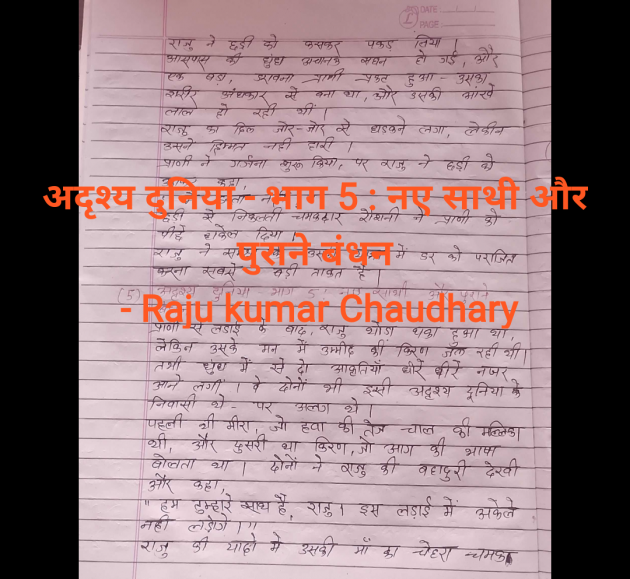 DATE
PAGE
राजु ने छड़ी को कसकर पकड़ लिया।
आसपास की धुंध अचानक सघन हो गई, और
एक बड़ा, डरावना प्राणी प्रकट हुआ - उसका
शरीर अंधकार से बना था, और उसकी आंखें
लाल हो रही थीं।
राजु का दिल जोर-जोर से धड़कने लगा, लेकीन
उसने हिम्मत नही हारी।
प्राणी ने गर्जना शुरू किया, पर राजु ने छड़ी को
कहा,
अदृश्य दुनिया - भाग 5 : नए साथी और
छड़ी से निकलती चमकदार रोशनी ने प्राणी को
पीछे धकेल दिया।
पुराने बंधन
राजु ने में डर को पराजित
करना सबसे बड़ी ताकत है।
(5) अदृश्य दुनिया भाग 5: नए साथी और पुराने
- Raju kumar Chaudhary
प्राणी से लड़ाई के बाद, राजु थोडा थका हुआ था,
लेकिन उसके मन में उम्मीद की किरण जल रही थी।
तभी धुंध में से दो आकृतियाँ धीरे धीरे नजर
आने लगीं। वे दोनों भी इसी अदृश्य दुनिया के
निवासी थे - पर अलग थे।
पहली थी मीरा, जो हवा की तेज चाल की मल्लिका
थी, और दुसरी था किरण, जो आग की भाषा
बोलता था। दोनों ने राजु की बहादुरी देखी
और कहा,
"हम तुम्हारे साथ हैं, राजु। इस लड़ाई में अकेले
नही लड़ोगे।"
राजु की यादो में उसकी माँ का चेहरा चमका